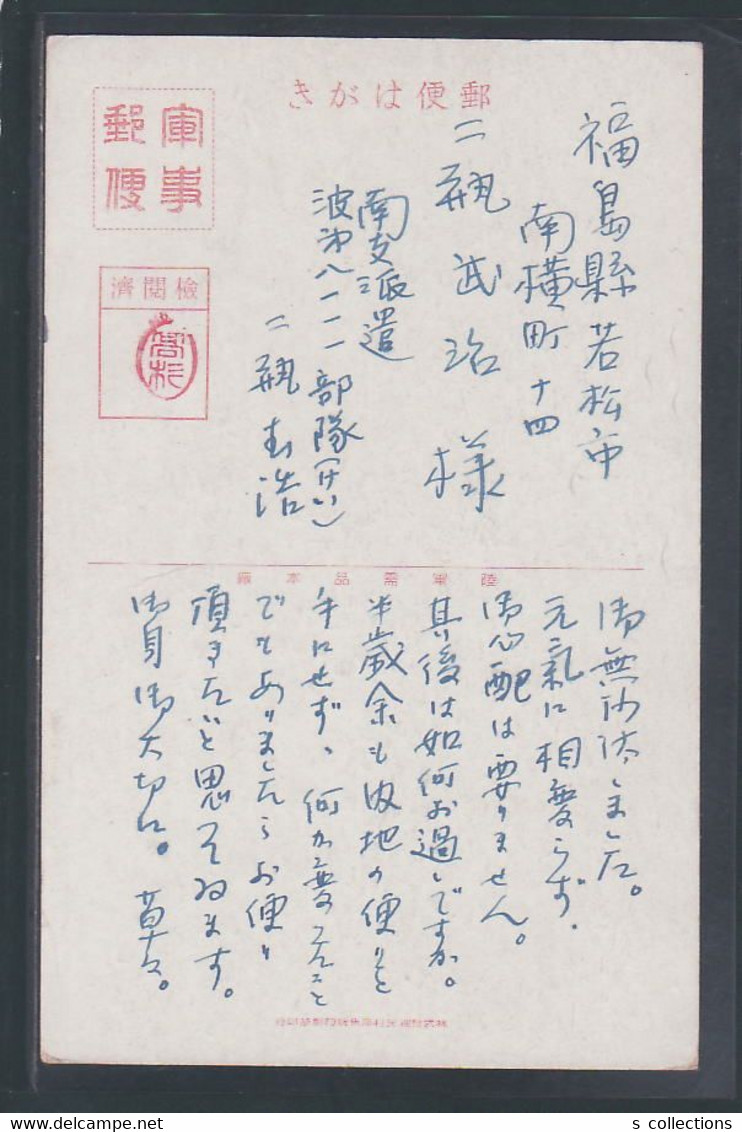 郵便はがき
軍事
郵便
検閲済
福島縣若松市
南横町十四
二瓶武治様
南支派遣
波第八一一一部隊(けい)
二瓶 浩
陸軍需品本廠
御無沙汰しました。
元氣に相変らず、
御心配は要りません。
其後は如何お過しですか。
半歳余も内地の便りを
手にせず、何か変ったこと
でもありましたらお便り
頂きたいと思ってゐます。
御身御大切に。草々。
s collections